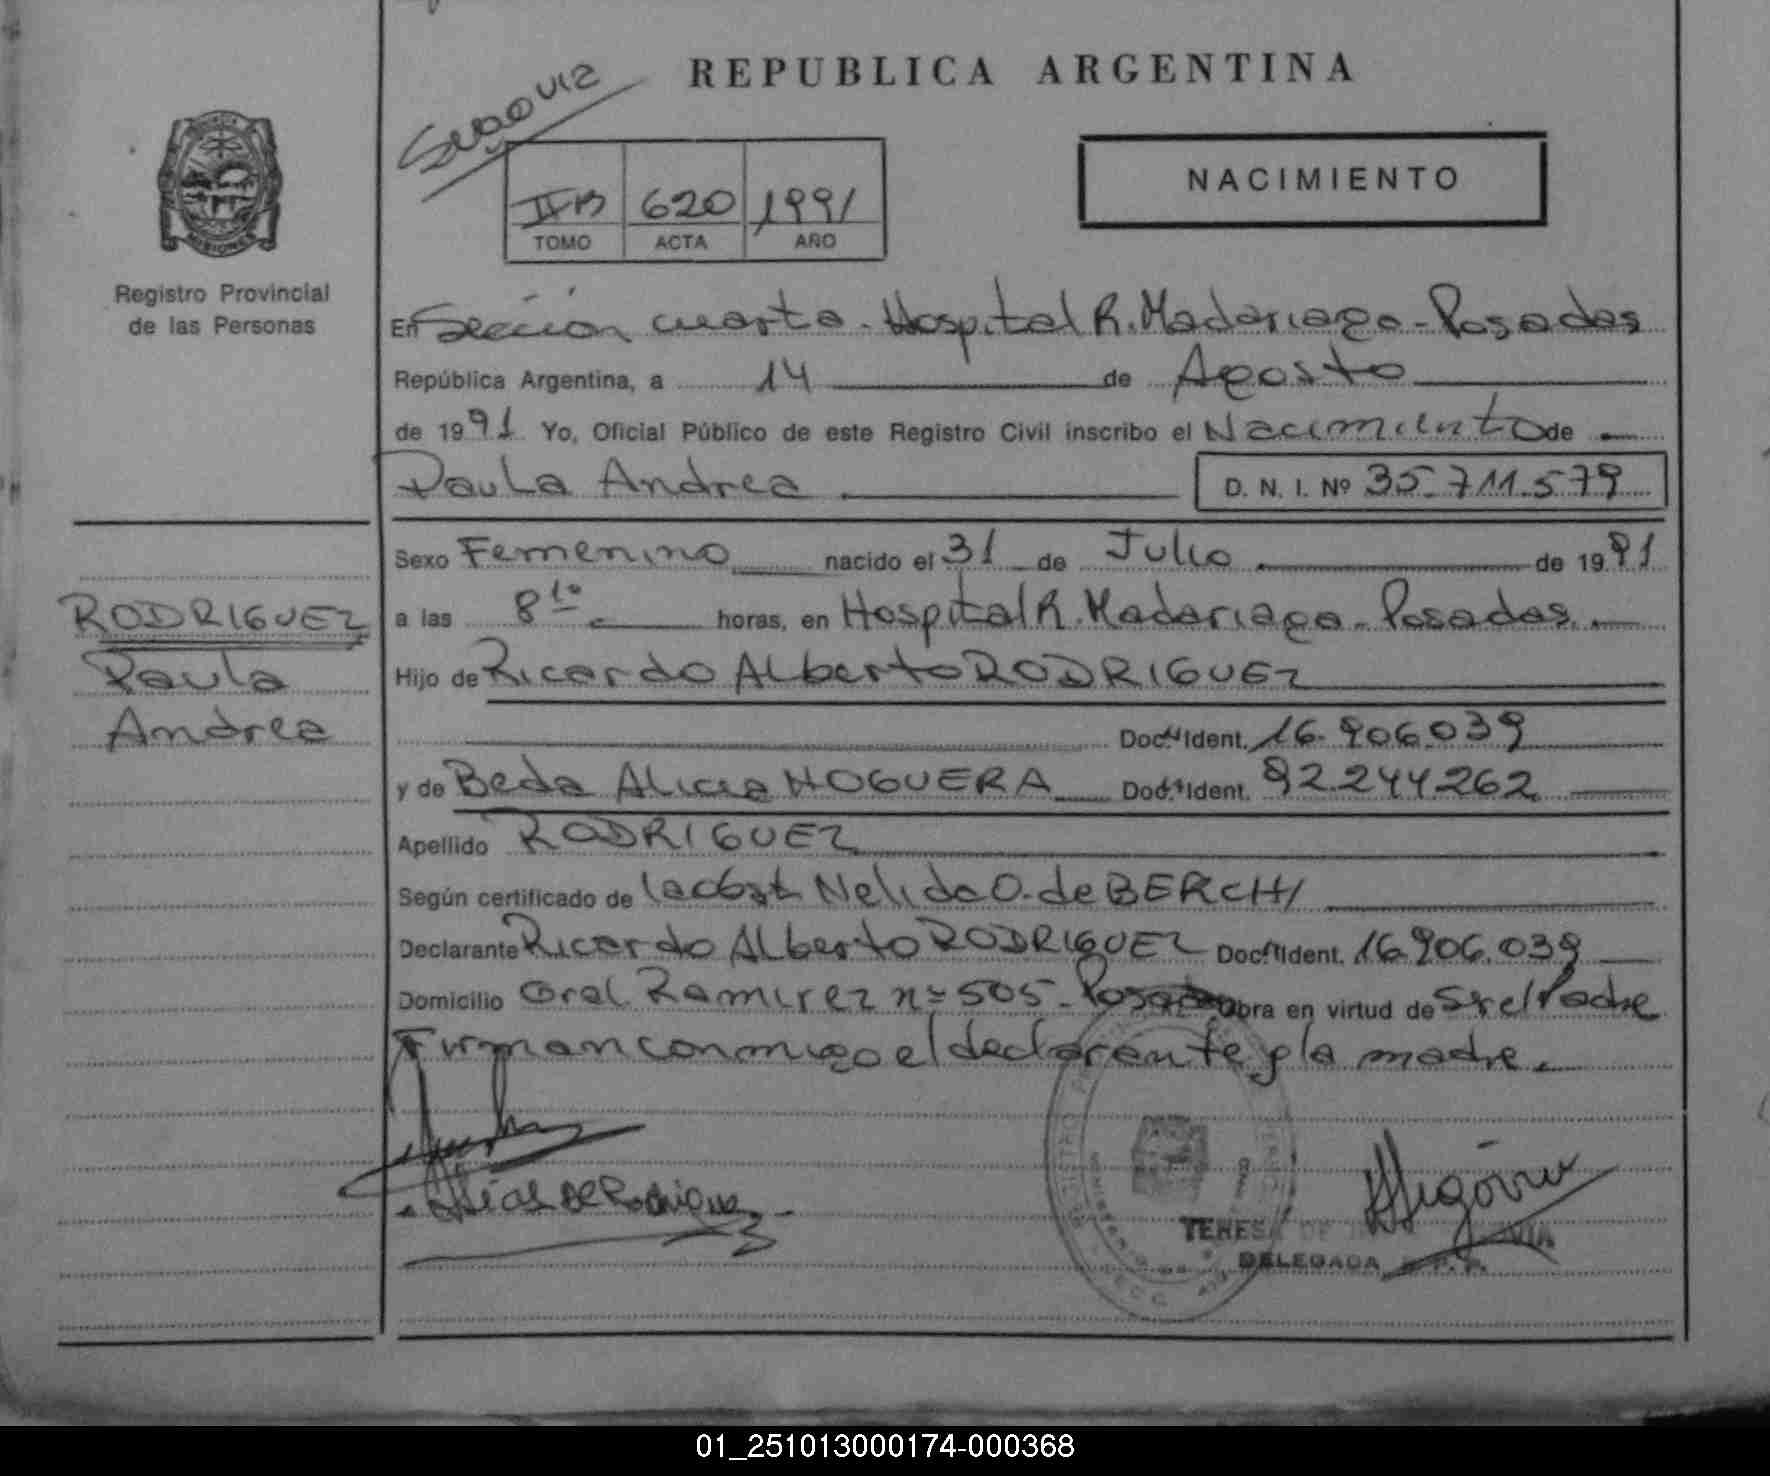 REPUBLICA ARGENTINA
NACIMIENTO
IIB 620 1991
TOMO ACTA AÑO
PROVINCIA DE MISIONES
Registro Provincial
de las Personas
En Sección cuarta - Hospital R. Madariaga - Posadas
República Argentina, a 14 de Agosto
de 1991 Yo, Oficial Público de este Registro Civil inscribo el Nacimiento de
Paula Andrea D. N. I. Nº 35.711.579
Sexo Femenino nacido el 31 de Julio de 1991
a las 8 10 horas, en Hospital R. Madariaga - Posadas.
Hijo de Ricardo Alberto RODRIGUEZ
Doc. Ident. 16.906.039
y de Beda Alicia NOGUERA Doc. Ident. 92.244.262
Apellido RODRIGUEZ
Según certificado de la obst Nelida O. de BERCHI
Declarante Ricardo Alberto RODRIGUEZ Doc. Ident. 16.906.039
Domicilio Gral Ramirez nº 505 - Posadas Obra en virtud de Ser el Padre
Firman conmigo el declarante y la madre.
RODRIGUEZ
Paula
Andrea
TERESA DE
DELEGADA R. P. P.
01_251013000174-000368